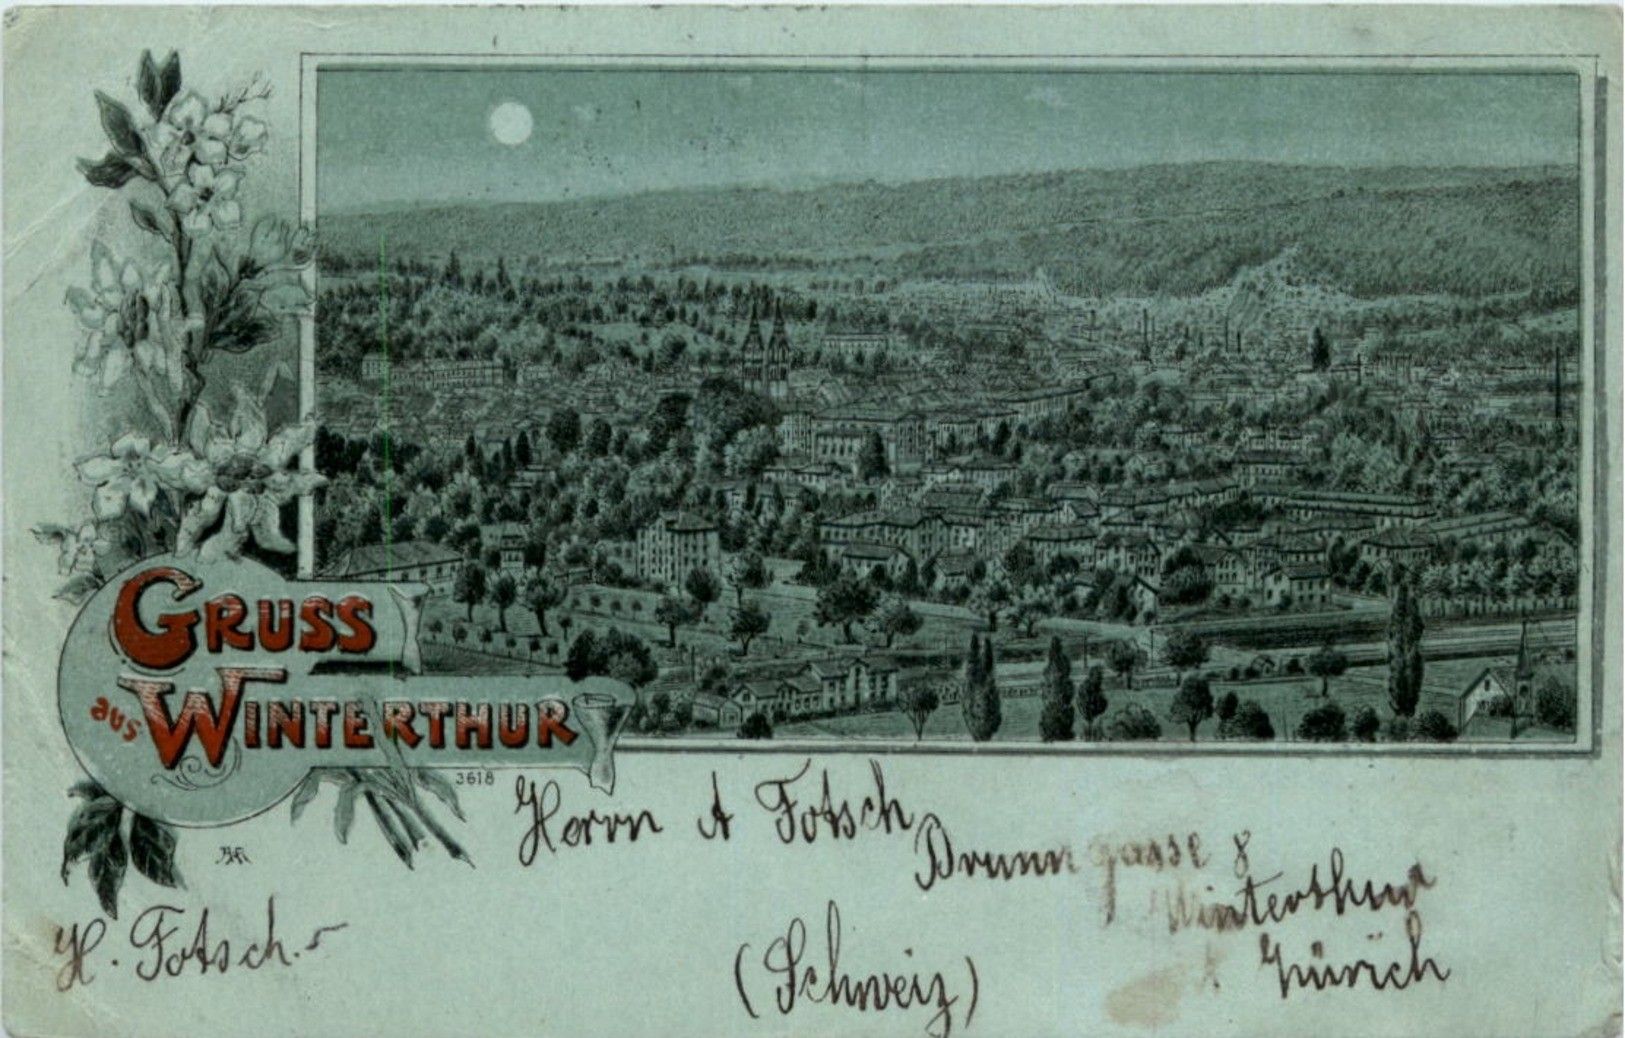 GRUSS
aus WINTERTHUR
3618
Herrn A Fotsch
Brunngasse 8
Winterthur
Zürich
(Schweiz)
H. Fotsch.